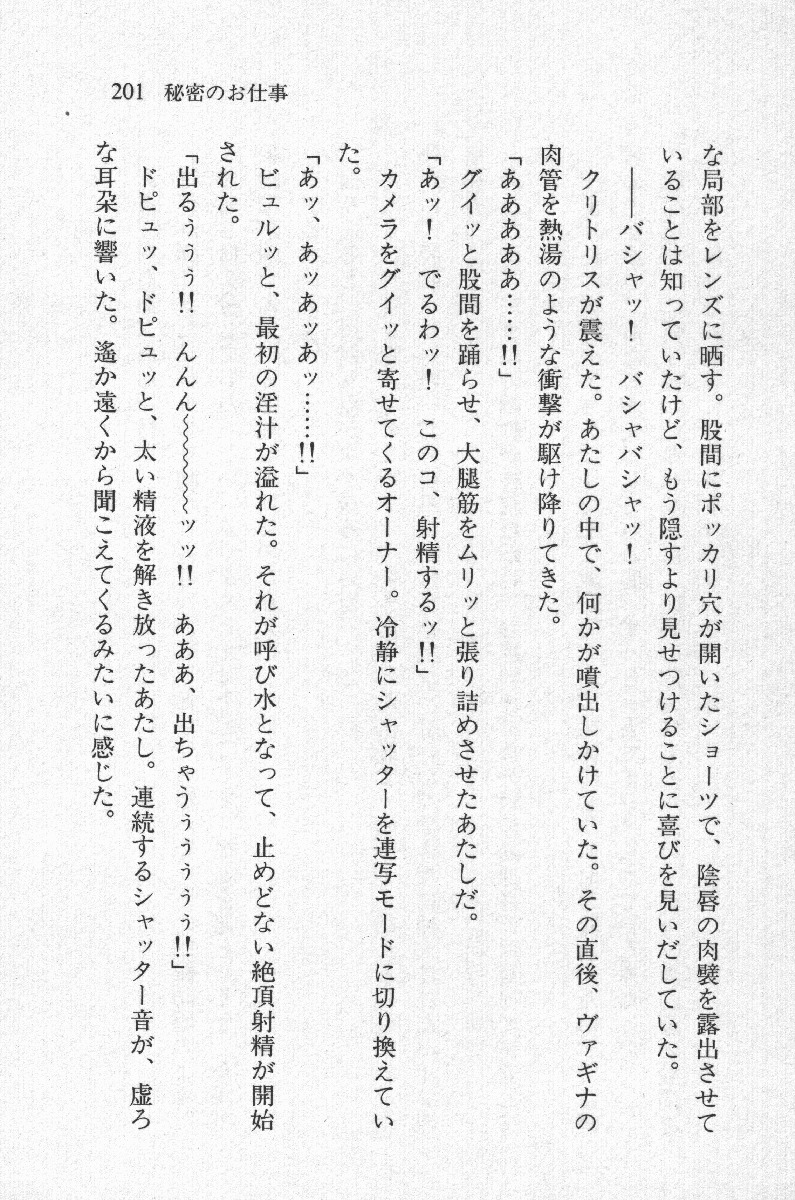 201 秘密のお仕事
な局部をレンズに晒す。股間にポッカリ穴が開いたショーツで、陰唇の肉襞を露出させて
いることは知っていたけど、もう隠すより見せつけることに喜びを見いだしていた。
――バシャッ！　バシャバシャッ！
クリトリスが震えた。あたしの中で、何かが噴出しかけていた。その直後、ヴァギナの
肉管を熱湯のような衝撃が駆け降りてきた。
「あああああ……!!」
グイッと股間を踊らせ、大腿筋をムリッと張り詰めさせたあたしだ。
「あッ！　でるわッ！　このコ、射精するッ!!」
カメラをグイッと寄せてくるオーナー。冷静にシャッターを連写モードに切り換えてい
た。
「あッ、あッあッあッ……!!」
ビュルッと、最初の淫汁が溢れた。それが呼び水となって、止めどない絶頂射精が開始
された。
「出るぅぅぅ!!　んんん～～～～～ッッ!!　あああ、出ちゃうぅぅぅぅぅ!!」
ドピュッ、ドピュッと、太い精液を解き放ったあたし。連続するシャッター音が、虚ろ
な耳朶に響いた。遙か遠くから聞こえてくるみたいに感じた。